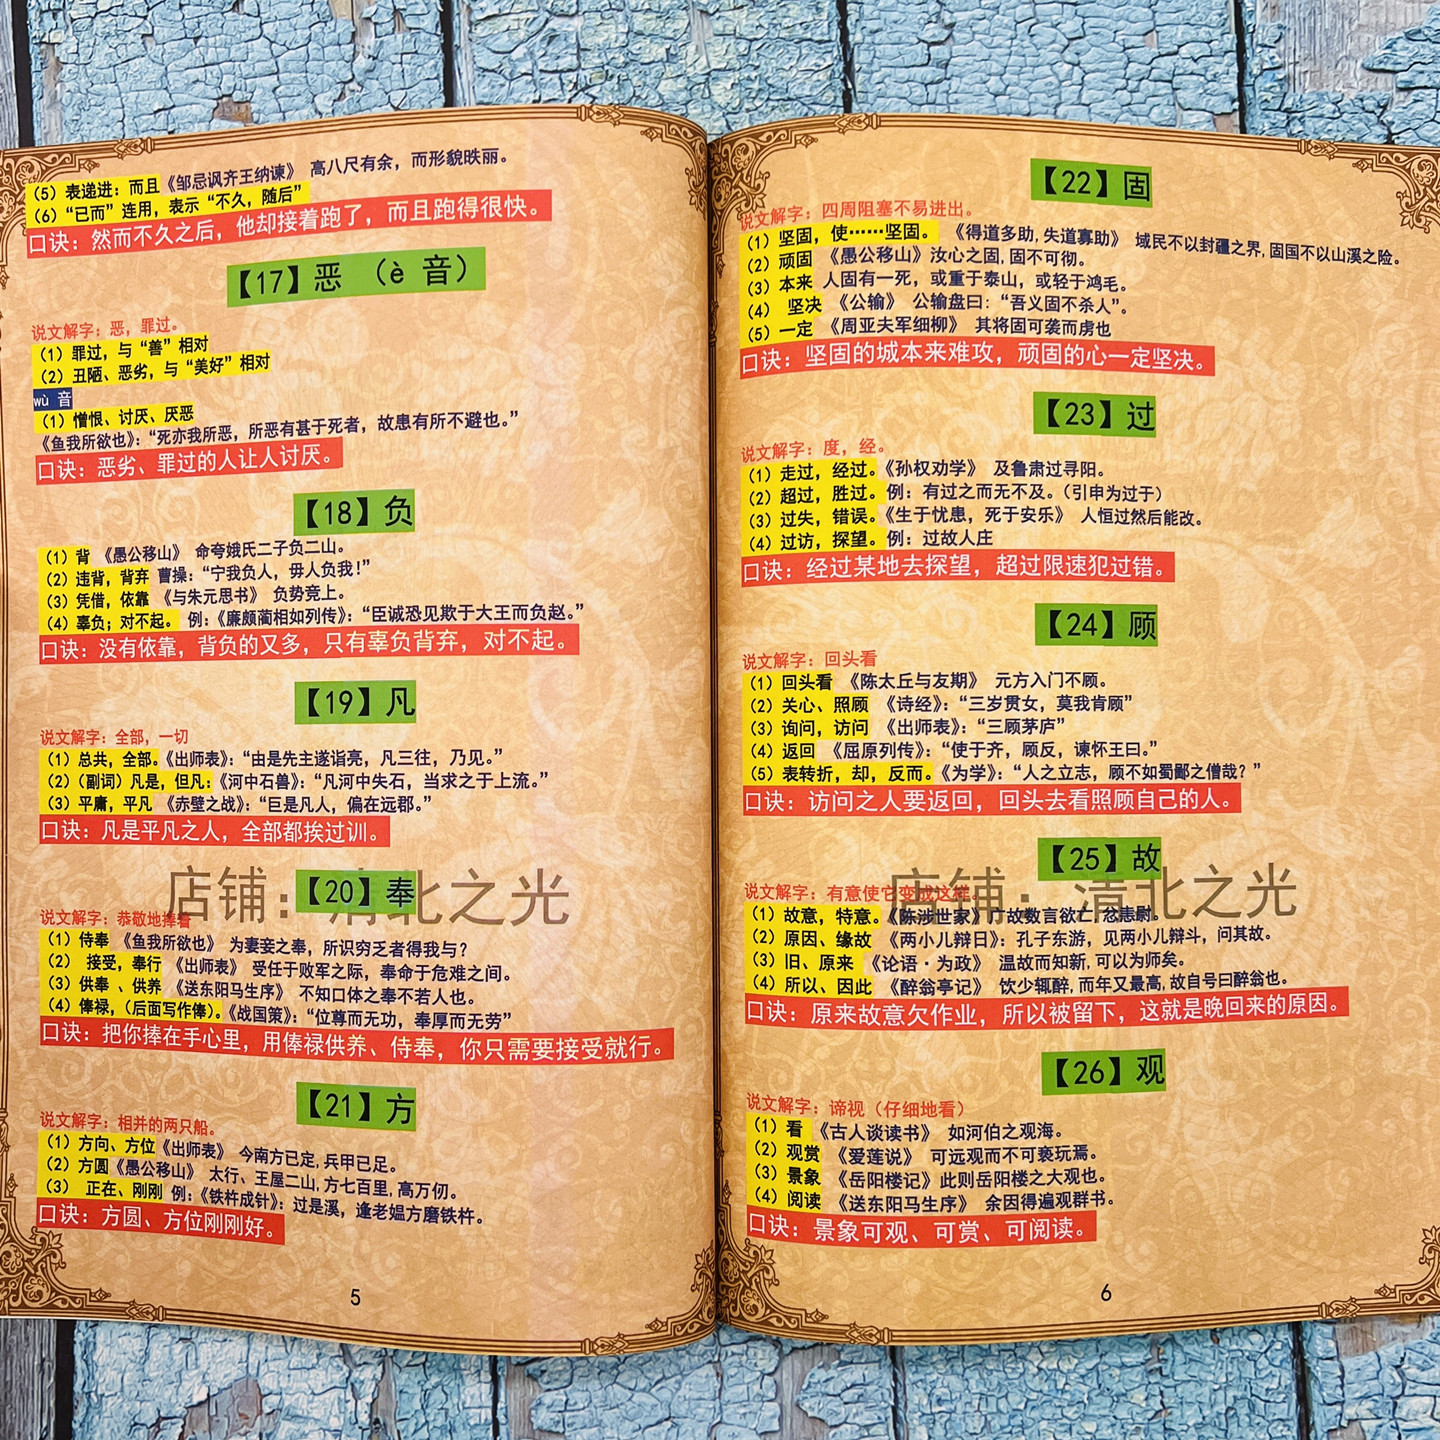 （5）表递进：而且《邹忌讽齐王纳谏》 高八尺有余，而形貌昳丽。
（6）“已而”连用，表示“不久，随后”
口诀：然而不久之后，他却接着跑了，而且跑得很快。
【17】恶 （è 音）
说文解字：恶，罪过。
（1）罪过，与“善”相对
（2）丑陋、恶劣，与“美好”相对
wù 音
（1）憎恨、讨厌、厌恶
《鱼我所欲也》：“死亦我所恶，所恶有甚于死者，故患有所不避也。”
口诀：恶劣、罪过的人让人讨厌。
【18】负
（1）背 《愚公移山》 命夸娥氏二子负二山。
（2）违背，背弃 曹操：“宁我负人，毋人负我！”
（3）凭借，依靠 《与朱元思书》 负势竞上。
（4）辜负；对不起。 例：《廉颇蔺相如列传》：“臣诚恐见欺于大王而负赵。”
口诀：没有依靠，背负的又多，只有辜负背弃，对不起。
【19】凡
说文解字：全部，一切
（1）总共，全部。《出师表》：“由是先主遂诣亮，凡三往，乃见。”
（2）（副词）凡是，但凡：《河中石兽》：“凡河中失石，当求之于上流。”
（3）平庸，平凡 《赤壁之战》：“巨是凡人，偏在远郡。”
口诀：凡是平凡之人，全部都挨过训。
店铺：清北之光
【20】奉
说文解字：恭敬地捧着
（1）侍奉 《鱼我所欲也》 为妻妾之奉，所识穷乏者得我与？
（2） 接受，奉行 《出师表》 受任于败军之际，奉命于危难之间。
（3）供奉 、供养 《送东阳马生序》 不知口体之奉不若人也。
（4）俸禄，（后面写作俸）。《战国策》：“位尊而无功，奉厚而无劳”
口诀：把你捧在手心里，用俸禄供养、侍奉，你只需要接受就行。
【21】方
说文解字：相并的两只船。
（1）方向、方位《出师表》 今南方已定，兵甲已足。
（2）方圆《愚公移山》 太行、王屋二山，方七百里，高万仞。
（3） 正在、刚刚 例：《铁杵成针》：过是溪，逢老媪方磨铁杵。
口诀：方圆、方位刚刚好。
5
【22】固
说文解字：四周阻塞不易进出。
（1）坚固，使……坚固。 《得道多助，失道寡助》 域民不以封疆之界，固国不以山溪之险。
（2）顽固 《愚公移山》汝心之固，固不可彻。
（3）本来 人固有一死，或重于泰山，或轻于鸿毛。
（4） 坚决 《公输》 公输盘曰：“吾义固不杀人”。
（5）一定 《周亚夫军细柳》 其将固可袭而虏也
口诀：坚固的城本来难攻，顽固的心一定坚决。
【23】过
说文解字：度，经。
（1）走过，经过。《孙权劝学》 及鲁肃过寻阳。
（2）超过，胜过。例：有过之而无不及。（引申为过于）
（3）过失，错误。《生于忧患，死于安乐》 人恒过然后能改。
（4）过访，探望。例：过故人庄
口诀：经过某地去探望，超过限速犯过错。
【24】顾
说文解字：回头看
（1）回头看 《陈太丘与友期》 元方入门不顾。
（2）关心、照顾 《诗经》：“三岁贯女，莫我肯顾”
（3）询问，访问 《出师表》：“三顾茅庐”
（4）返回 《屈原列传》：“使于齐，顾反，谏怀王曰。”
（5）表转折，却，反而。《为学》：“人之立志，顾不如蜀鄙之僧哉？”
口诀：访问之人要返回，回头去看照顾自己的人。
【25】故
店铺：清北之光
说文解字：有意使它变成这样。
（1）故意，特意。《陈涉世家》广故数言欲亡，忿恚尉。
（2）原因、缘故 《两小儿辩日》：孔子东游，见两小儿辩斗，问其故。
（3）旧、原来 《论语·为政》 温故而知新，可以为师矣。
（4）所以、因此 《醉翁亭记》 饮少辄醉，而年又最高，故自号曰醉翁也。
口诀：原来故意欠作业，所以被留下，这就是晚回来的原因。
【26】观
说文解字：谛视（仔细地看）
（1）看 《古人谈读书》 如河伯之观海。
（2）观赏 《爱莲说》 可远观而不可亵玩焉。
（3）景象 《岳阳楼记》此则岳阳楼之大观也。
（4）阅读 《送东阳马生序》 余因得遍观群书。
口诀：景象可观、可赏、可阅读。
6